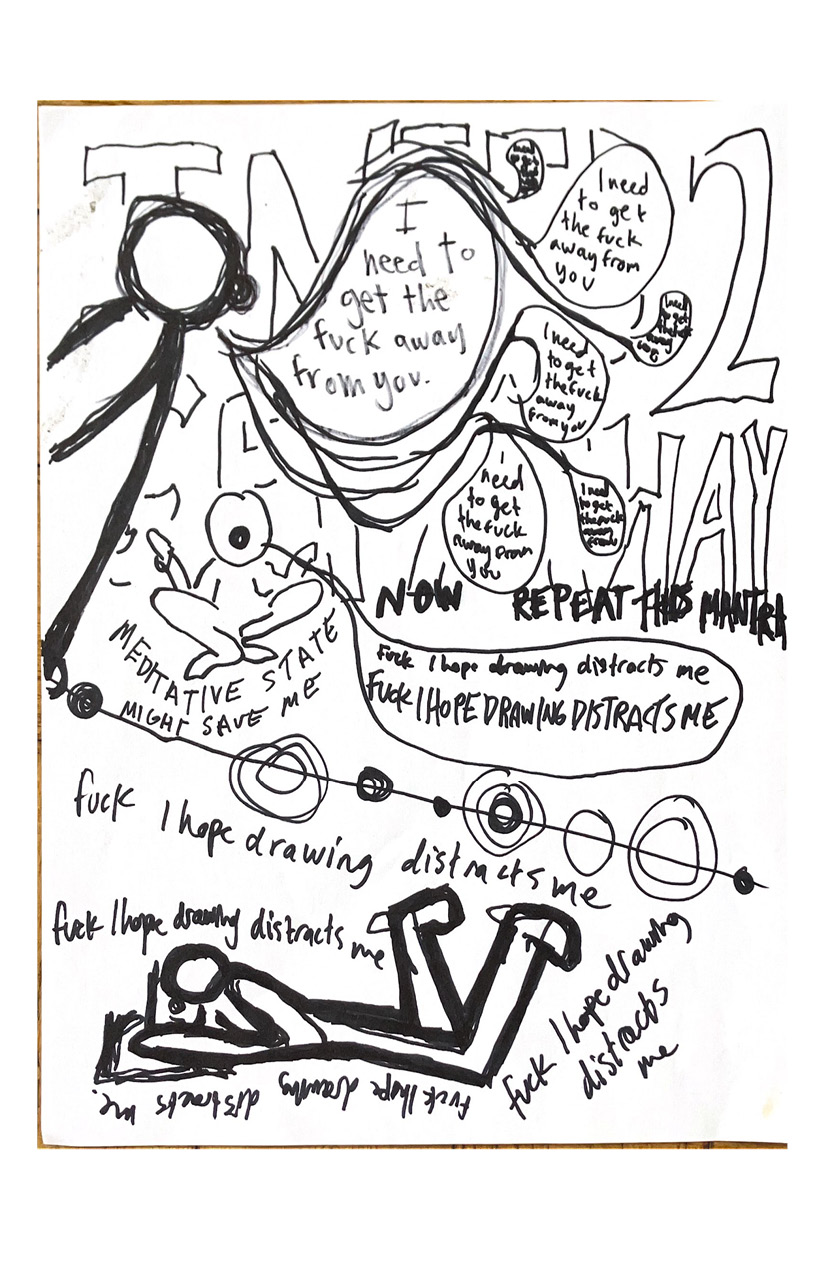 2
I need
to get
the fuck
away from
you
I
need to
get the
fuck away
from you.
I need
to get
the fuck
away
I need
to get
the fuck
away
from you
WAY
I
need
to get
the fuck
away from
you
I need
to get
the fuck
away
from
NOW REPEAT THIS MANTRA
MEDITATIVE STATE
MIGHT SAVE ME
Fuck I hope drawing distracts me
FUCK I HOPE DRAWING DISTRACTS ME
fuck I hope drawing distracts me
fuck I hope drawing distracts me
fuck I hope drawing
distracts
me
fuck I hope drawing
distracts
me.